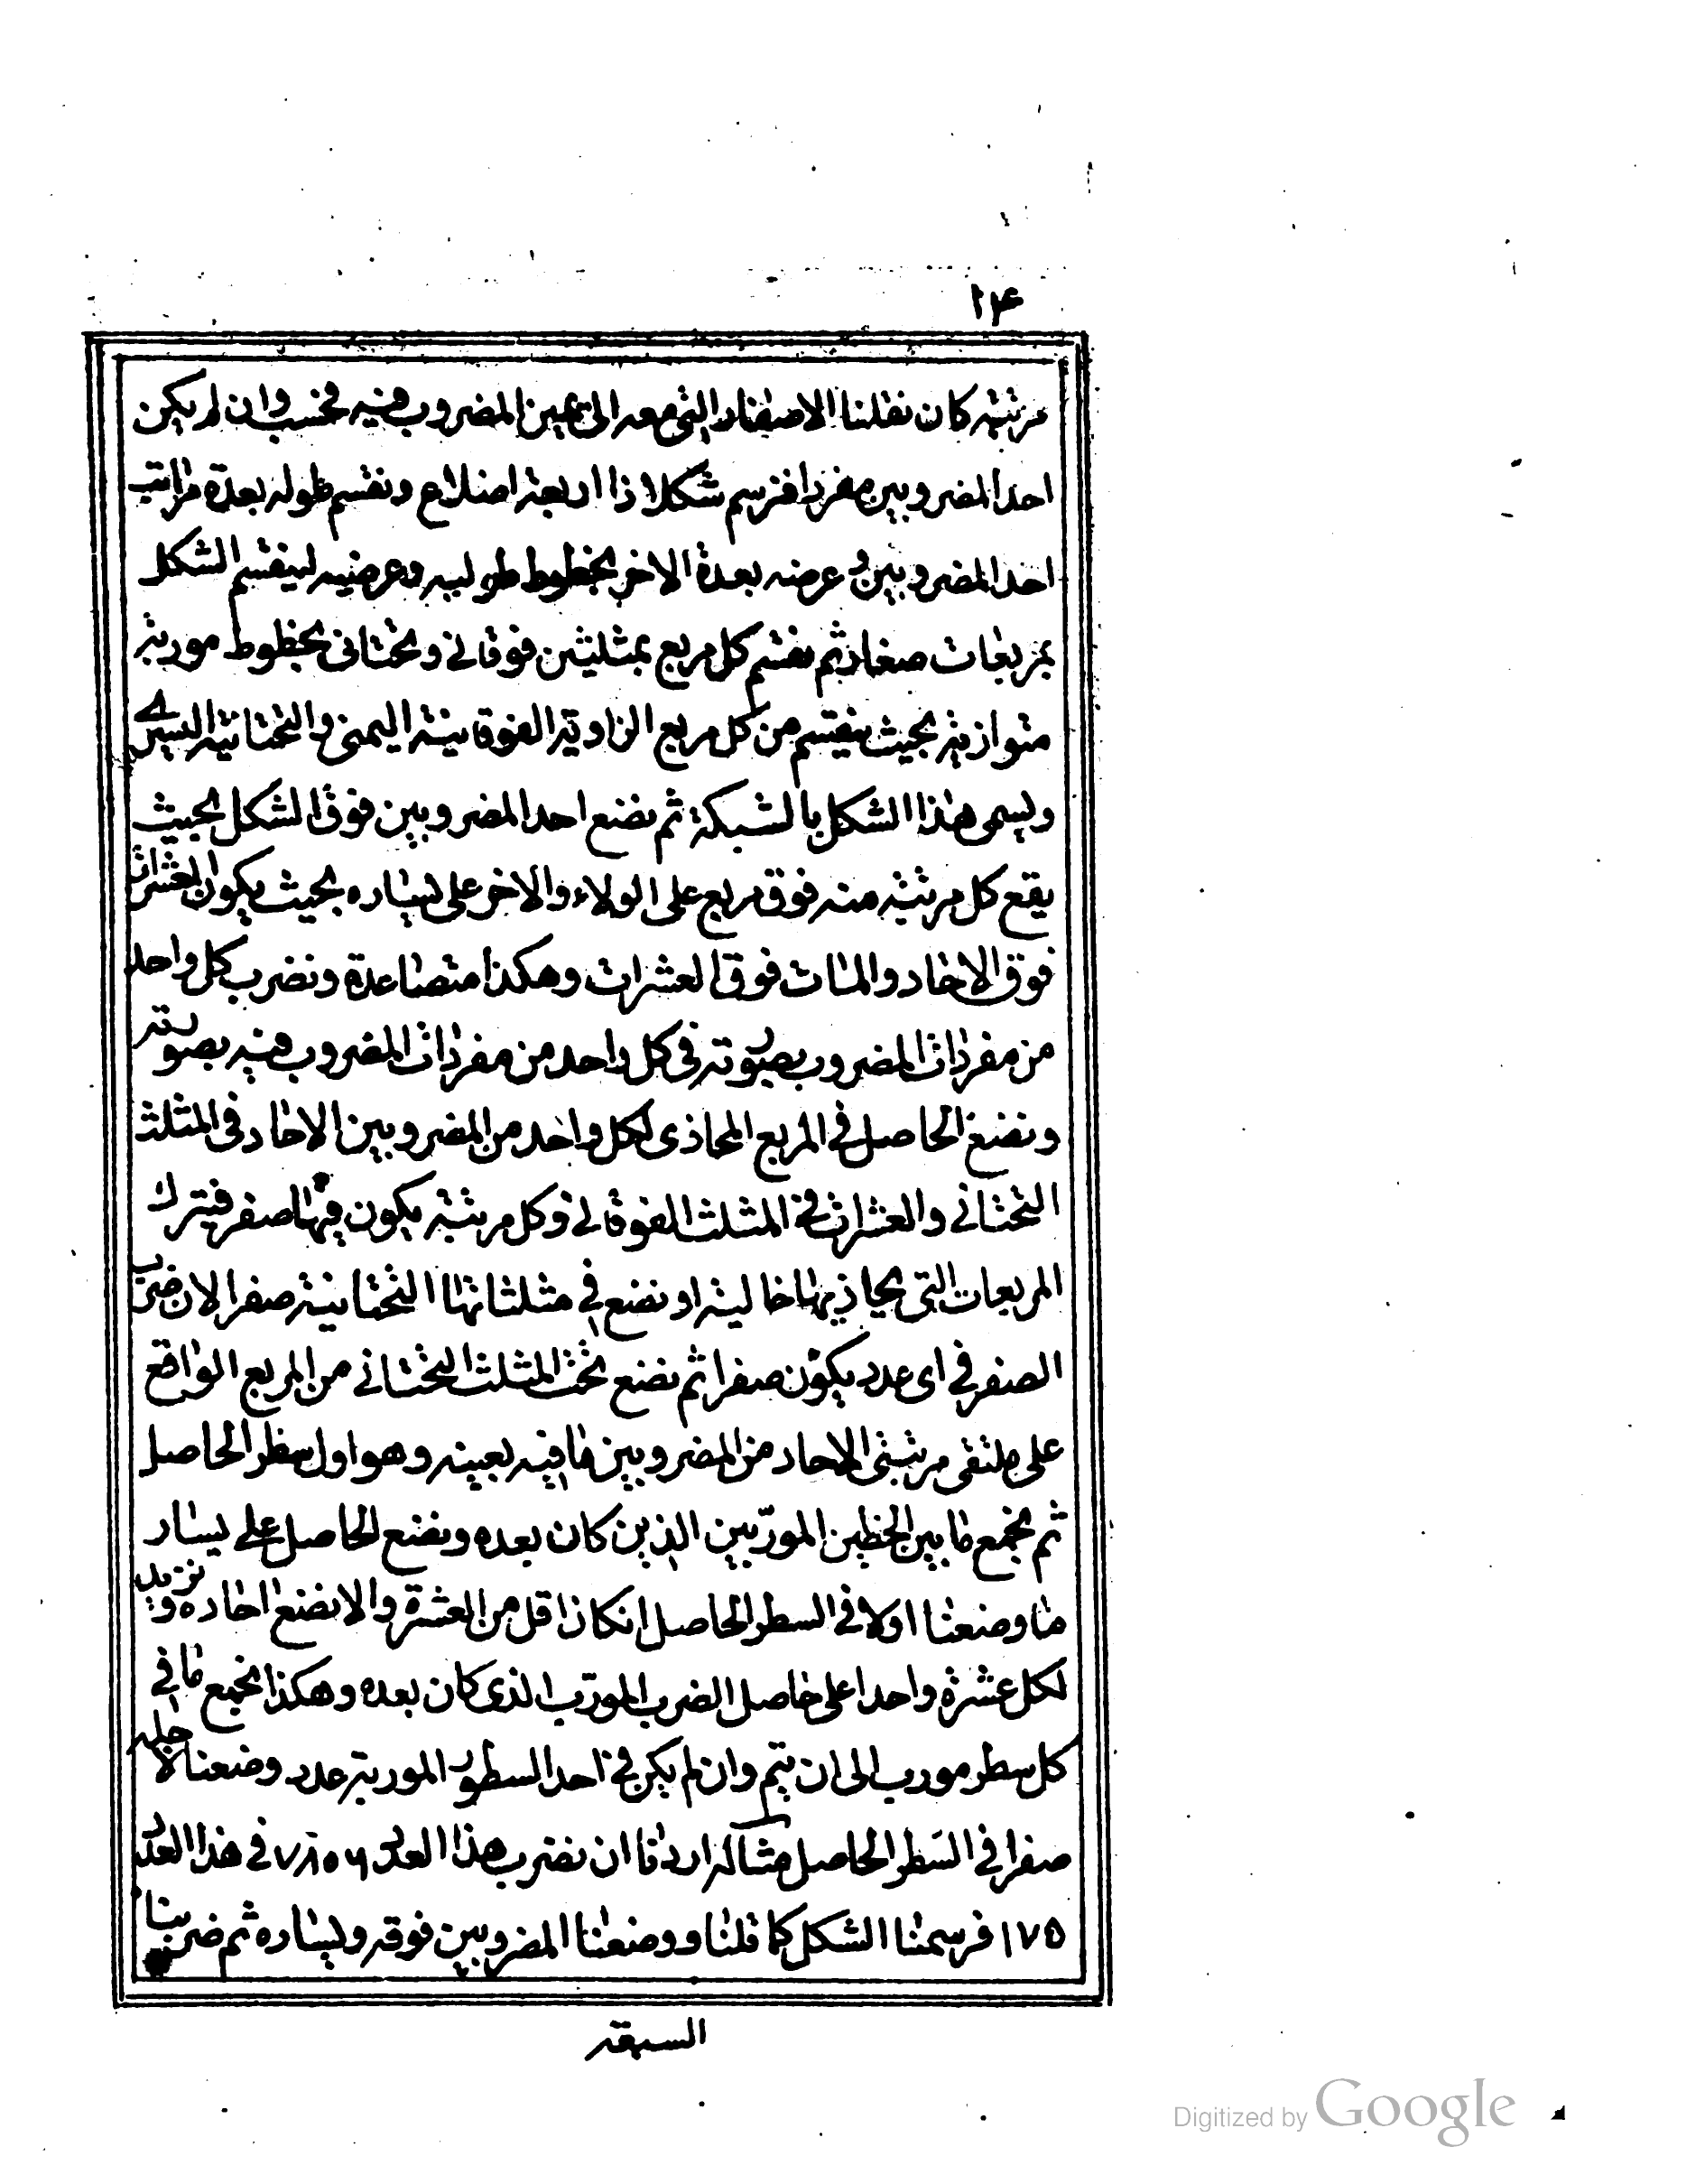 ١٤
مرتبه كان نقلنا الاصفار التي معه الى يمين المضروب فيه فحسب وان لم يكن
احد المضروبين مفردا فنرسم شكلا ذا اربعة اضلاع ونقسم طوله بعدة مراتب
احد المضروبين وعرضه بعدة الاخر بخطوط طوليه وعرضيه لينقسم الشكل
بمربعات صغار ثم نقسم كل مربع بمثلثين فوقاني وتحتاني بخطوط موربة
متوازية بحيث ينقسم من كل مربع الزاوية الفوقانية اليمنى والتحتانية اليسرى
ويسمى هذا الشكل بالشبكة ثم نضع احد المضروبين فوق الشكل بحيث
يقع كل مرتبة منه فوق مربع على الولاء والاخر على يساره بحيث يكون العشرات
فوق الاحاد والمئات فوق العشرات وهكذا متصاعدة ونضرب كل واحد
من مفردات المضروب بصورته في كل واحد من مفردات المضروب فيه بصورته
ونضع الحاصل في المربع المحاذى لكل واحد من المضروبين الاحاد في المثلث
التحتاني والعشرات في المثلث الفوقاني وكل مرتبة يكون فيها صفر فنترك
المربعات التي يحاذيها خالية او نضع في مثلثاتها التحتانية صفرا لان ضرب
الصفر في اى عدد يكون صفرا ثم نضع تحت المثلث التحتاني من المربع الواقع
على ملتقى مرتبتى الاحاد من المضروبين ما فيه بعينه وهو اول سطر الحاصل
ثم نجمع ما بين الخطين الموربين الذين كان بعده ونضع الحاصل على يسار
ما وضعنا اولا في السطر الحاصل انكان اقل من العشرة والا نضع احاده ونزيد
لكل عشرة واحدا على حاصل الضرب المورب الذى كان بعده وهكذا نجمع ما في
كل سطر مورب الى ان يتم وان لم يكن في احد السطور الموربة عدد وضعنا لاجله
صفرا في السطر الحاصل مثاله اردنا ان نضرب هذا العدد ٧٨٥٦ في هذا العدد
١٧٥ فرسمنا الشكل كما قلنا ووضعنا المضروبين فوقه ويساره ثم ضربنا
السبعة
Digitized by Google